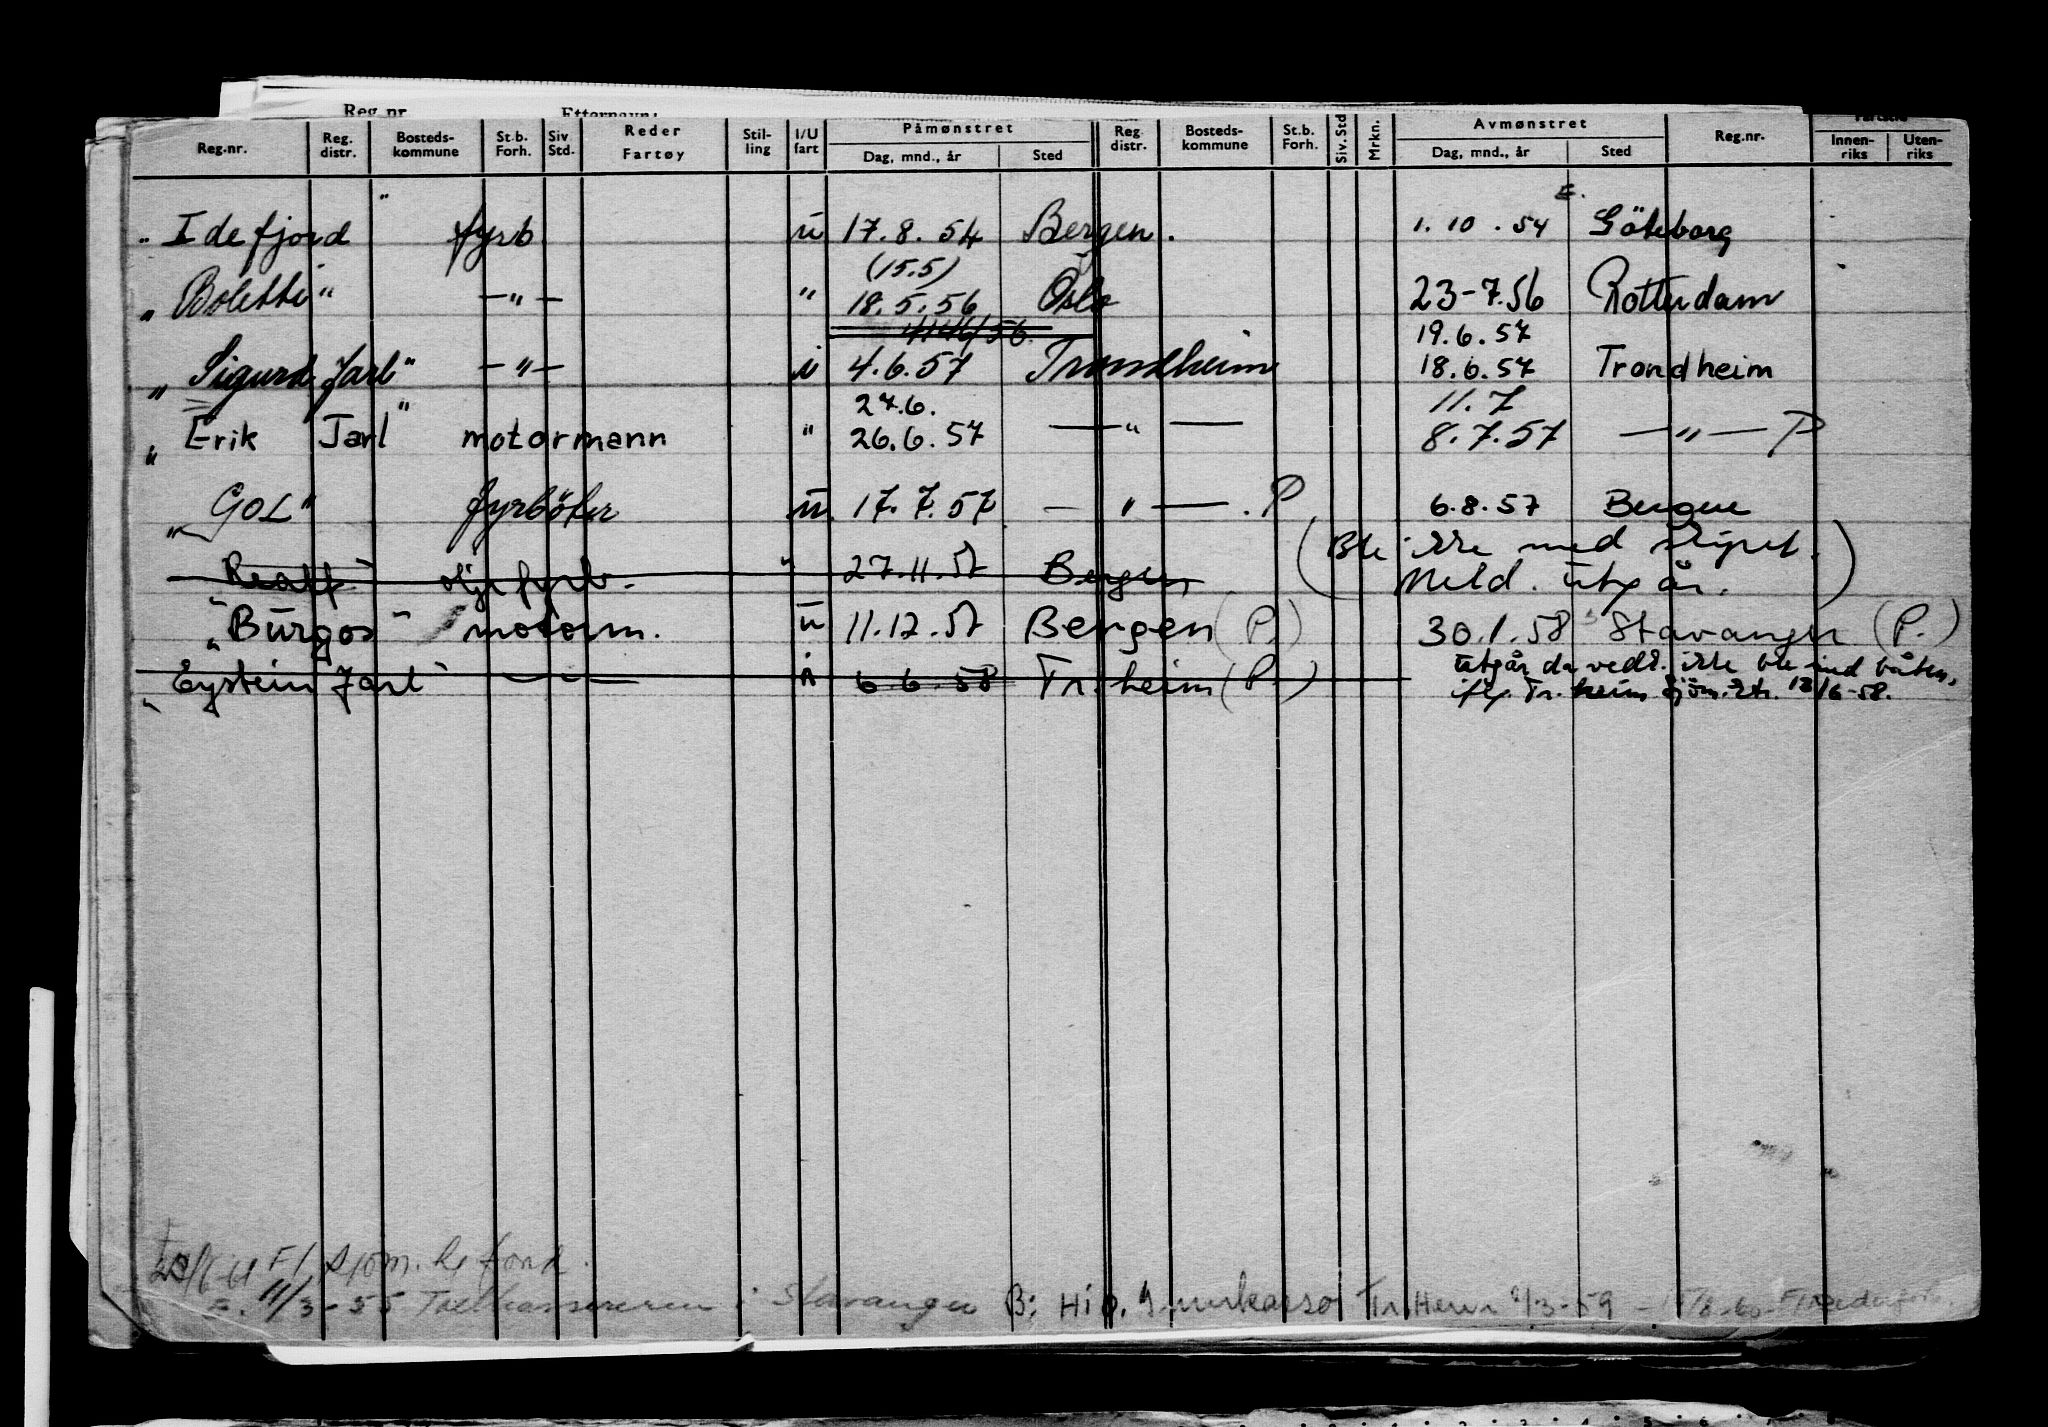 Reg.nr. Etternavn:
Reg.nr. Reg. distr. Bosteds-kommune St.b. Forh. Siv. Std. Reder Fartøy Stil-ling I/U fart Påmønstret Dag, mnd., år Sted Reg. distr. Bosteds-kommune St.b. Forh. Siv. Std. Mrkn. Avmønstret Dag, mnd., år Sted Reg.nr. Fartstid Innen-riks Uten-riks
" Idefjord " fyrb u 17.8.54 Bergen. 1.10.54 Göteborg
(15.5)
" Boletti " —"— " 18.5.56 Oslo 23-7.56 Rotterdam
19.6.57
" Sigurd Jarl " —"— i 4.6.57 Trondheim 18.6.57 Trondheim
27.6. 11.7
" Erik Jarl " motormann " 26.6.57 —"— 8.7.57 —"— P
" GOL " fyrböter u 17.7.57 —"— . P 6.8.57 Bergen
(Ble ikke med skipet.
oljefyrb. " 27.11.57 Bergen Meld. utgår.)
" Burgos " motorm. u 11.12.57 Bergen (P.) 30.1.58 Stavanger (P.)
utgår da vedk. ikke ble med båten,
" Eystein Jarl " —"— i 6.6.58 Tr.heim (P.) Tr.heim 13/6-58.
F/ sjöm.
11/3-55 i Stavanger B: Tr.heim 3-59